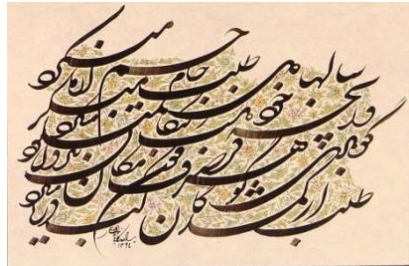 سالها دل طلب جام جم از ما میکرد
وآنچه خود داشت ز بیگانه تمنا میکرد
گوهری کز صدف کون و مکان بیرون است
طلب از گمشدگان لب دریا میکرد